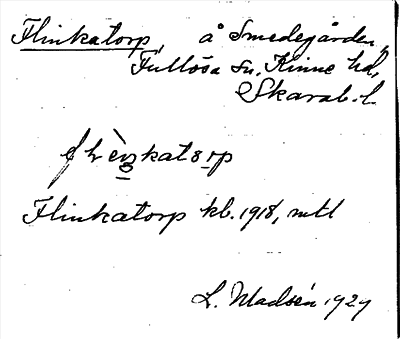 Flinkatorp, å Smedegården,
Fullösa sn, Kinne hd,
Skarab. l.
Flinkatorp kb. 1918, mtl
L. Madsén 1929